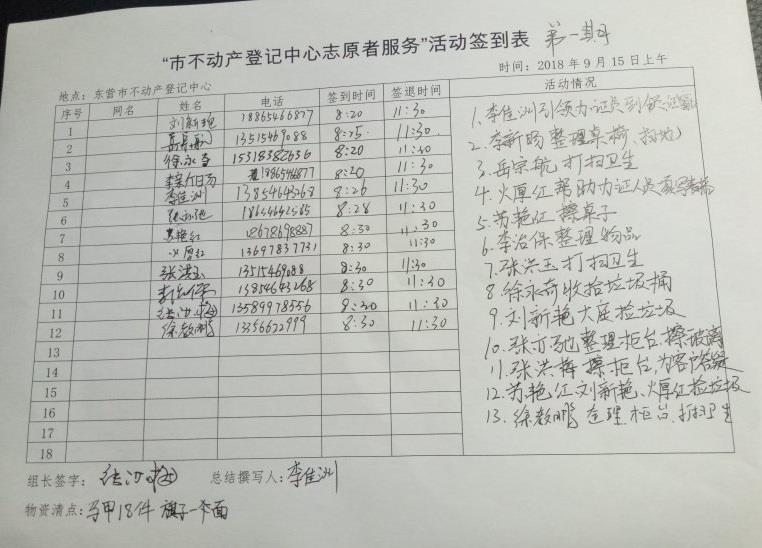 “市不动产登记中心志愿者服务”活动签到表 第一期
地点：东营市不动产登记中心 时间：2018年9月15日上午
序号 网名 姓名 电话 签到时间 签退时间 活动情况
1 刘新艳 18865466877 8:20 11:30
2 岳宗航 13515469088 8:25 11:30
3 徐永奇 15318382636 8:20 11:30
4 李新旸 18865466877 8:20 11:30
5 李佳洲 13854643268 8:26 11:30
6 张亦弛 8:28 11:30
7 苏艳红 8:30 11:30
8 火厚红 13697837731 8:30 11:30
9 张洪玉 13515469088 8:30 11:30
10 李治保 13854643268 8:30 11:30
11 13589978556 8:30 11:30
12 徐敦鹏 13356622999 8:30 11:30
13
14
15
16
17
18
1、李佳洲引领办证员到领证
2、李新旸整理桌椅、扫地
3、岳宗航打扫卫生
4、火厚红帮助办证人员填写表格
5、苏艳红擦桌子
6、李治保整理物品
7、张洪玉打扫卫生
8、徐永奇收拾垃圾桶
9、刘新艳大厅捡垃圾
10、张亦弛整理柜台、擦玻璃
11、张洪梅擦柜台，为客户答疑
12、苏艳红刘新艳、火厚红捡垃圾
13、徐敦鹏整理柜台、打扫卫生
组长签字： 总结撰写人：李佳洲
物资清点：马甲18件 旗子一面